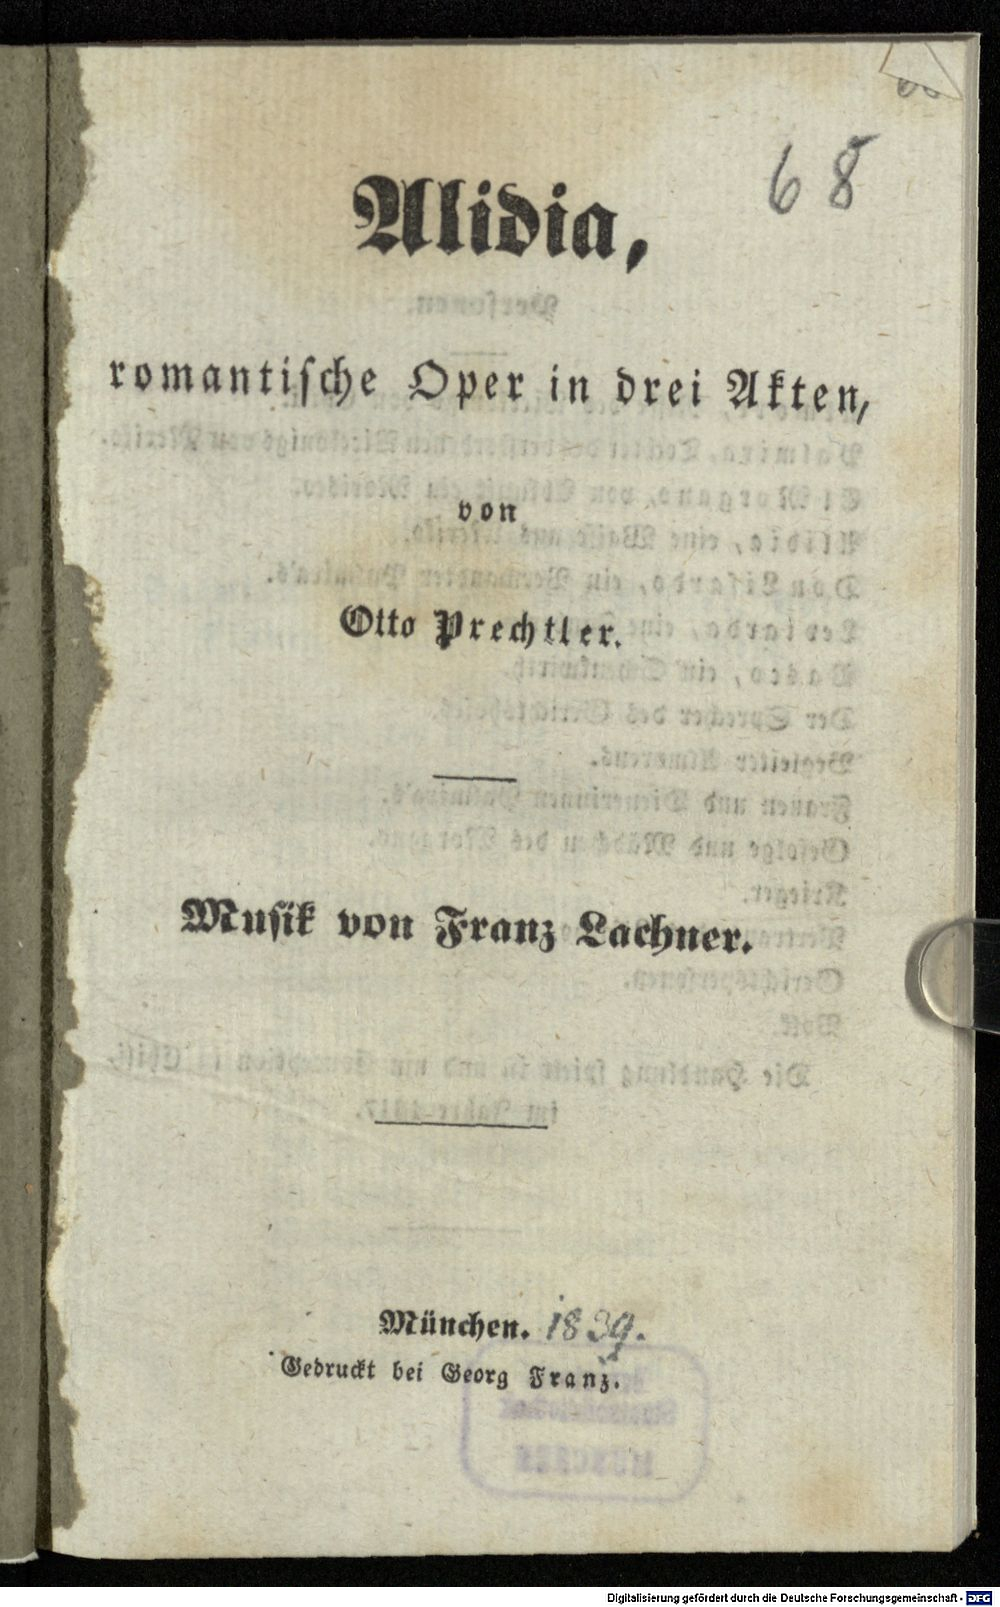 68
Alidia,
romantische Oper in drei Akten,
von
Otto Prechtler.
Musik von Franz Lachner.
München. 1839.
Gedruckt bei Georg Franz.
MÜNCHEN
Digitalisierung gefördert durch die Deutsche Forschungsgemeinschaft - DFG